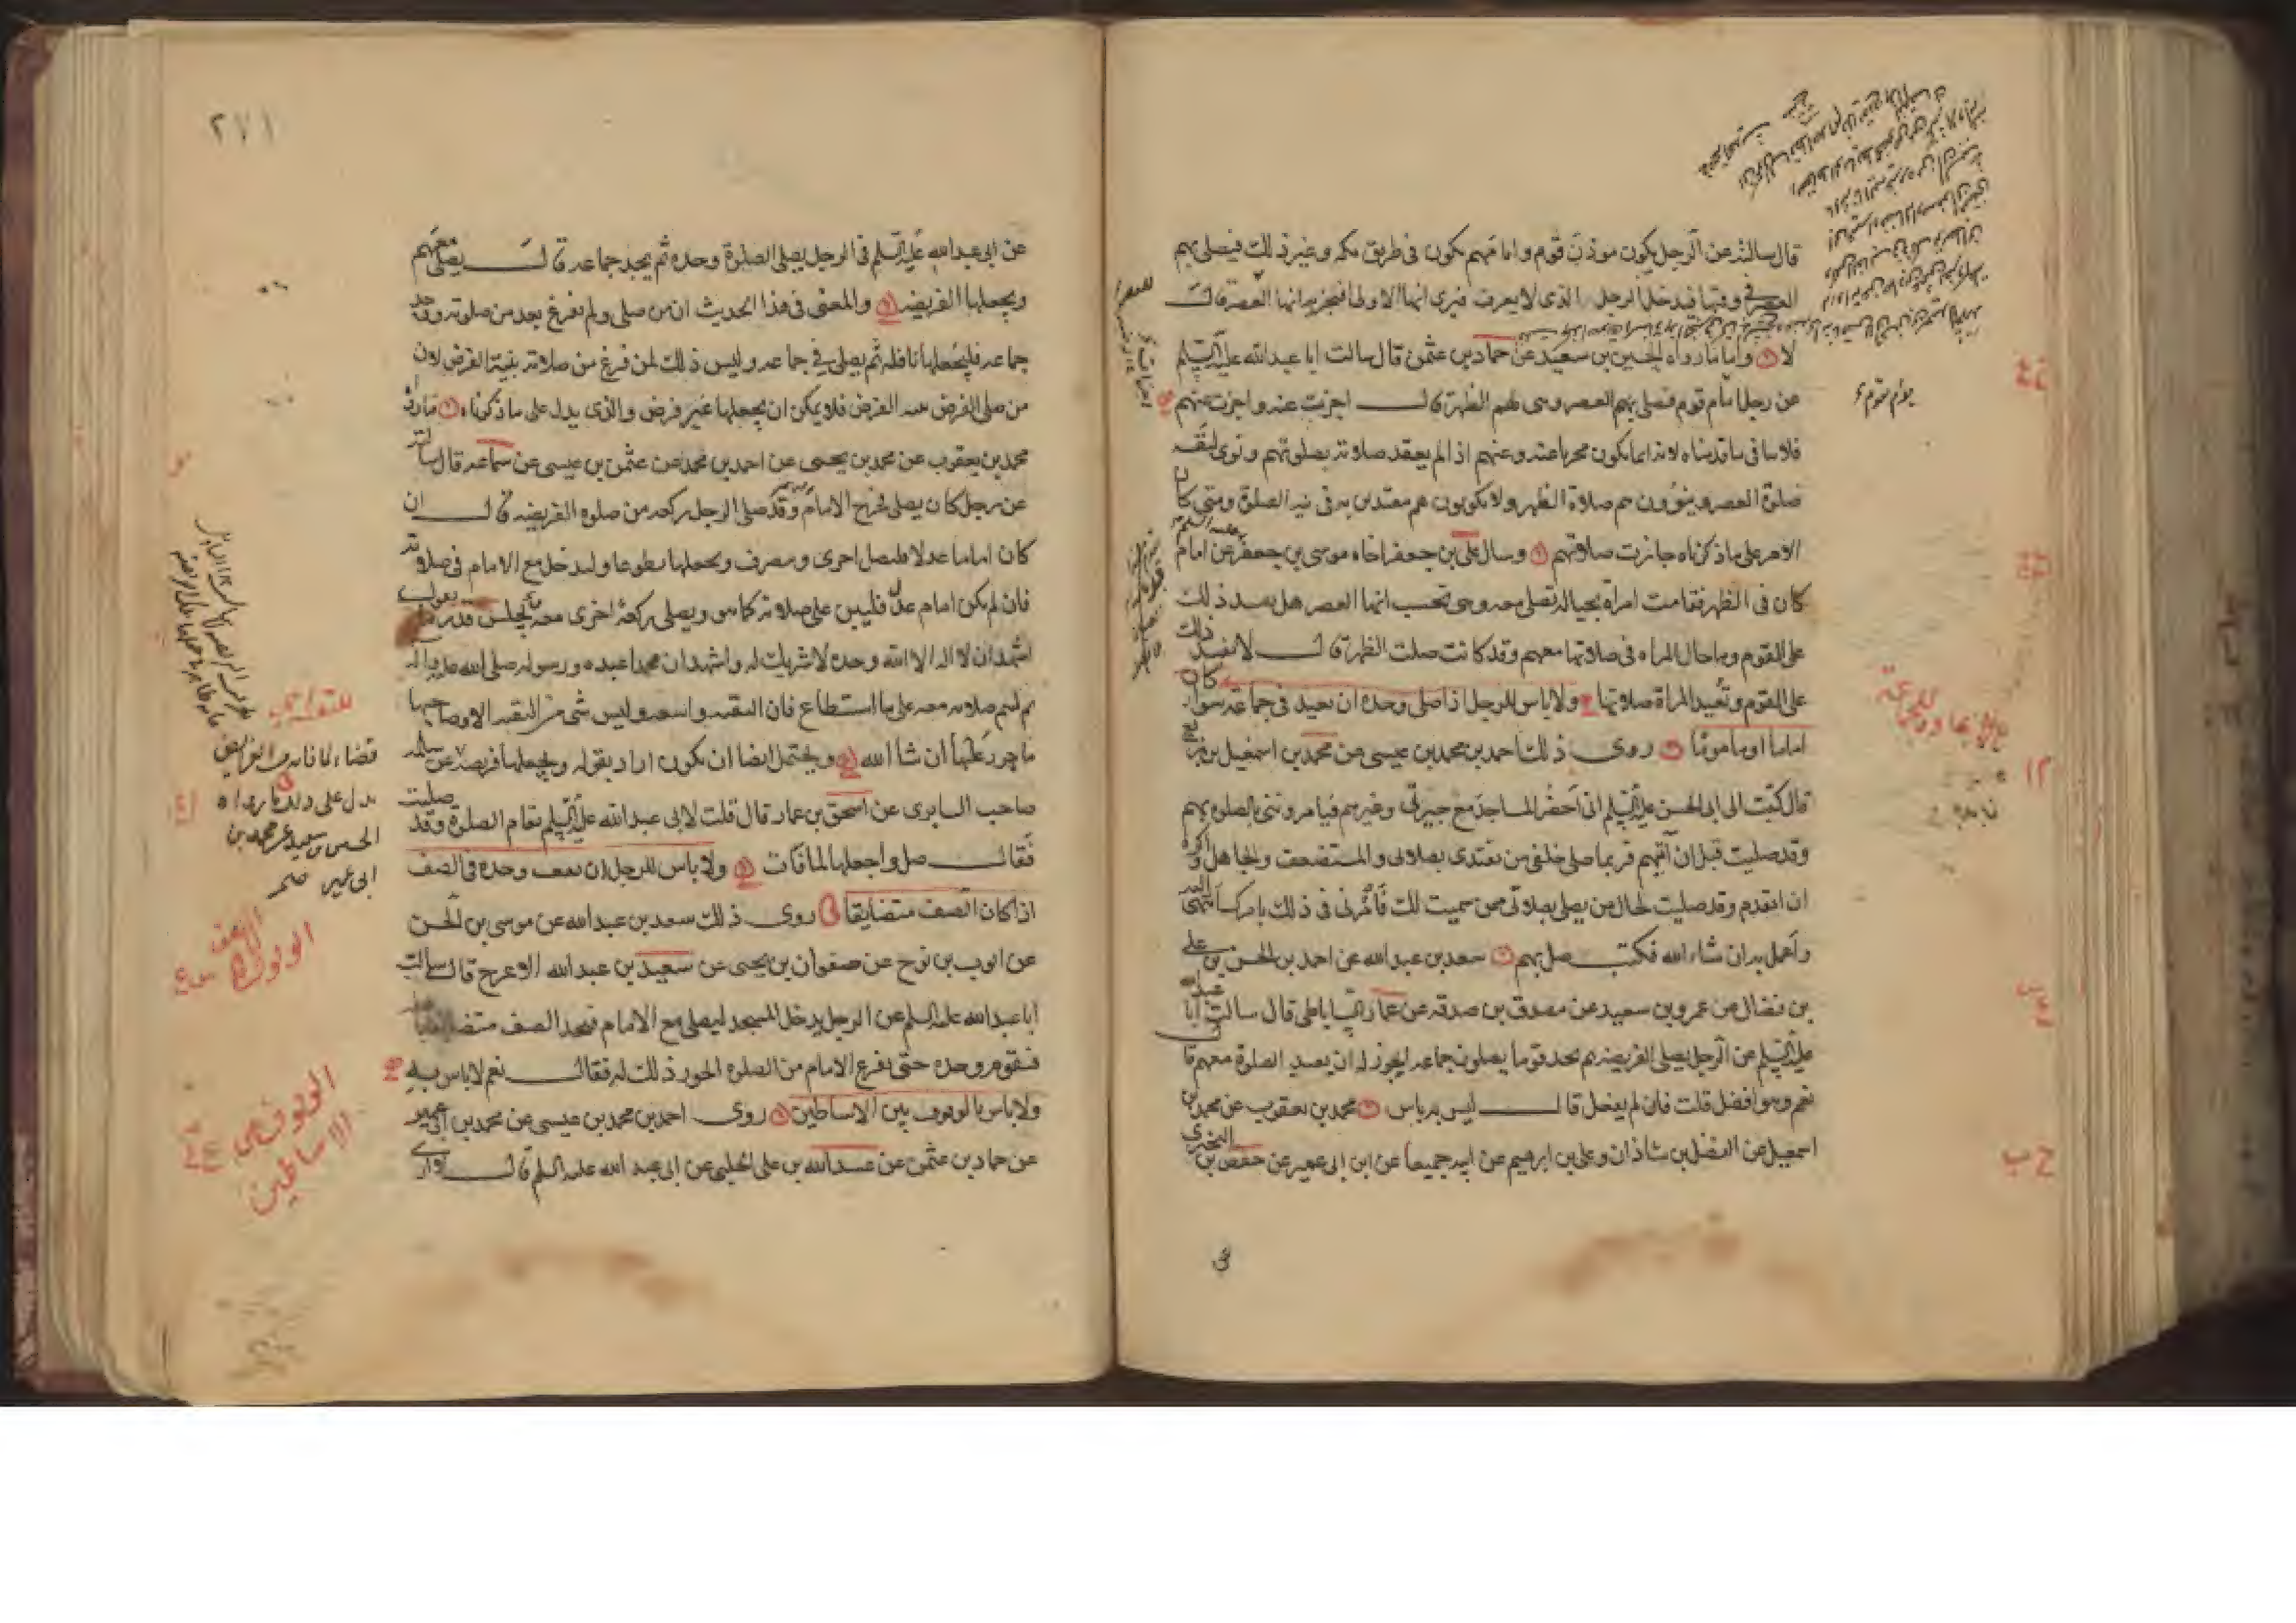 قال سالته عن الرجل يكون موذن قوم وامامهم يكون فى طريق مكه وغير ذلك فيصلى بهم
العصر فى وقتها فيدخل الرجل الذى لا يعرف فيرى انها الاولى افتجزيه انها العصر قال
لا واما ما رواه الحسين بن سعيد عن حماد بن عثمن قال سالت ابا عبد الله عليه السلم
عن رجل امام قوم فصلى بهم العصر وهى لهم الظهر قال اجزت عنه واجزت عنهم
فلا ينافى ما قدمناه لانه انما يكون مجزيا عنه وعنهم اذا لم يعقد صلاته بصلوتهم ونوى لنفسه
صلوة العصر وينوون هم صلاة الظهر ولا يكونون هم مقتدين به فى نيه الصلوة ومتى كان
الامر على ما ذكرناه جازت صلاتهم وسال على بن جعفر اخاه موسى بن جعفر عن امام
كان فى الظهر فقامت امراة بحياله تصلى معه وهى تحسب انها العصر هل يفسد ذلك
على القوم وما حال المراه فى صلاتها معهم وقد كانت صلت الظهر قال لا يفسد ذلك
على القوم وتعيد المراة صلاتها ولا باس للرجل اذا صلى وحده ان يعيد فى جماعة سوا كان
اماما او ماموما روى ذلك احمد بن محمد بن عيسى عن محمد بن اسمعيل بن بزيع
قال كتبت الى ابى الحسن عليه السلم انى احضر المساجد مع جيرتى وغيرهم فيامروننى بالصلوه بهم
وقد صليت قبل ان اتيهم فربما صلى خلفى من يقتدى بصلاتى والمستضعف والجاهل واكره
ان اتقدم وقد صليت لحال من يصلى بصلاتى ممن سميت لك فامرنى فى ذلك بامرك انتهى اليه
واعمل به ان شاء الله فكتب صل بهم سعد بن عبد الله عن احمد بن الحسن بن على
بن فضال عن عمرو بن سعيد عن مصدق بن صدقه عن عمار الساباطى قال سالت ابا عبد الله
عليه السلم عن الرجل يصلى الفريضه ثم يجد قوما يصلون جماعه ايجوز له ان يعيد الصلوة معهم قال
نعم وهو افضل قلت فان لم يفعل قال ليس به باس محمد بن يعقوب عن محمد بن
اسمعيل عن الفضل بن شاذان وعلى بن ابرهيم عن ابيه جميعا عن ابن ابى عمير عن حفص بن البخترى
٢٧١
عن ابى عبد الله عليه السلم فى الرجل يصلى الصلوة وحده ثم يجد جماعه قال يصلى معهم
ويجعلها الفريضه والمعنى فى هذا الحديث ان من صلى ولم يفرغ بعد من صلوته ووجد
جماعه فليجعلها نافله ثم يصلى فى جماعه وليس ذلك لمن فرغ من صلاته بنية الفرض لان
من صلى الفرض بنيه الفرض فلا يمكن ان يجعلها غير فرض والذى يدل على ما ذكرناه ما رواه
محمد بن يعقوب عن محمد بن يحيى عن احمد بن محمد عن عثمن بن عيسى عن سماعه قال سالته
عن رجل كان يصلى فخرج الامام وقد صلى الرجل ركعه من صلوه الفريضه قال ان
كان اماما عدلا فليصل اخرى وينصرف ويجعلها تطوعا وليدخل مع الامام فى صلاته
فان لم يكن امام عدل فليبن على صلاته كما هو ويصلى ركعة اخرى معه يجلس قدر ما يقول
اشهد ان لا اله الا الله وحده لا شريك له واشهد ان محمدا عبده ورسوله صلى الله عليه واله
ثم ليتم صلاته معه على ما استطاع فان التقيه واسعه وليس شى من التقيه الا وصاحبها
ماجور عليها ان شا الله ويحتمل ايضا ان يكون اراد بقوله ويجعلها فريضه عن سلمه
صاحب السابرى عن اسحق بن عمار قال قلت لابى عبد الله عليه السلم تقام الصلوة وقد صليت
فقال صل واجعلها لما فات ولا باس للرجل ان يقف وحده فى الصف
اذا كان الصف متضايقا روى ذلك سعد بن عبد الله عن موسى بن الحسن
عن ايوب بن نوح عن صفوان بن يحيى عن سعيد بن عبد الله الاعرج قال سالت
ابا عبد الله عليه السلم عن الرجل يدخل المسجد ليصلى مع الامام فيجد الصف متضايقا
فيقوم وحده حتى يفرغ الامام من الصلوه ايجوز ذلك له فقال نعم لا باس به
ولا باس بالوقوف بين الاساطين روى احمد بن محمد بن عيسى عن محمد بن ابى عمير
عن حماد بن عثمن عن عبيد الله بن على الحلبى عن ابى عبد الله عليه السلم قال لا ارى
قضاء لما فاته من الفرايض
يدل على ذلك ما رواه
الحسين بن سعيد عن محمد بن
ابى عمير عن
الوقوف بين
الاساطين